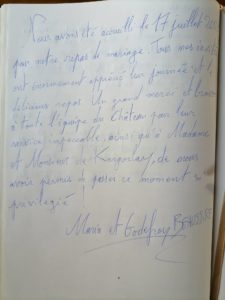 Nous avons été accueillis le 17 juillet
pour notre repas de mariage. Tous mes invités
ont énormément apprécié leur journée et le
délicieux repas. Un grand merci et bravo
à toute l'équipe du Château pour leur
service impeccable, ainsi qu'à Madame
et Monsieur de Kergorlay, de nous
avoir permis de passer ce moment si
privilégié !
Marie et Godefroy